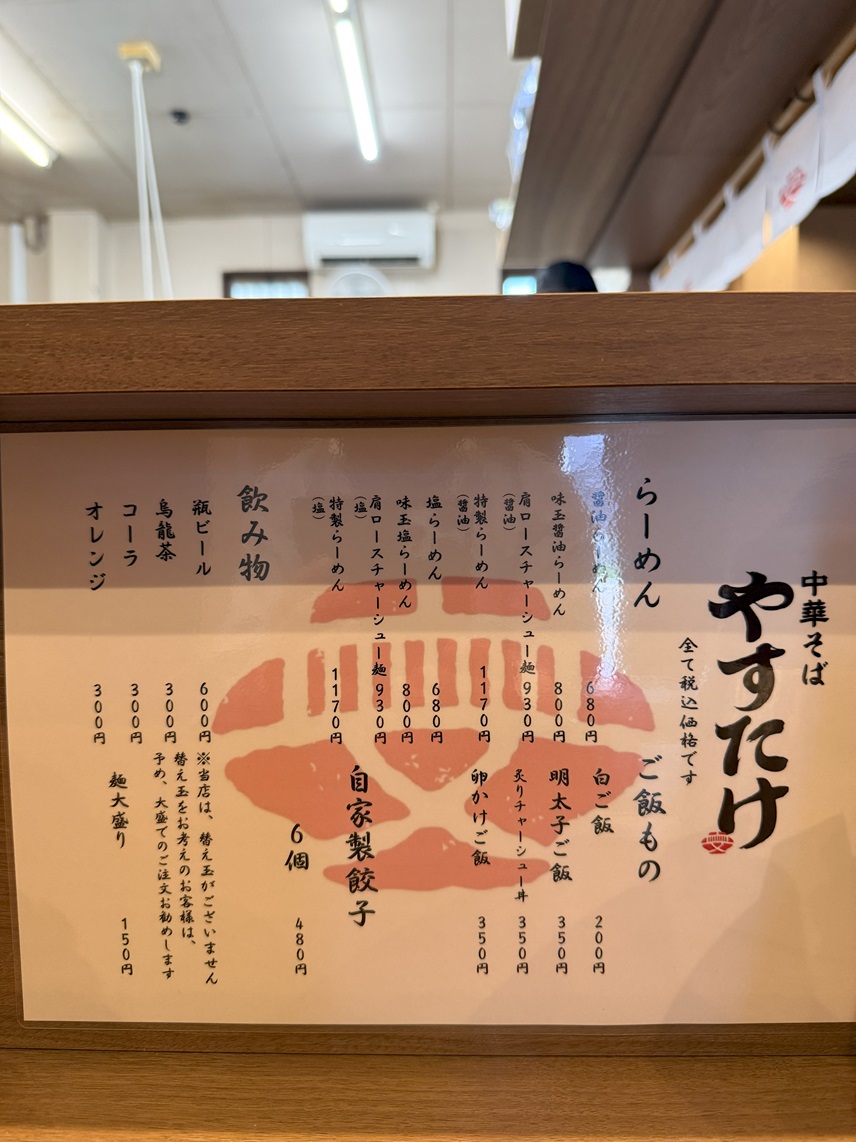 中華そば
やすたけ
全て税込価格です
らーめん
醤油らーめん 680円
味玉醤油らーめん 800円
肩ロースチャーシュー麺(醤油) 930円
特製らーめん(醤油) 1170円
塩らーめん 680円
味玉塩らーめん 800円
肩ロースチャーシュー麺(塩) 930円
特製らーめん(塩) 1170円
ご飯もの
白ご飯 200円
明太子ご飯 350円
炙りチャーシュー丼 350円
卵かけご飯 350円
自家製餃子
6個 480円
飲み物
瓶ビール 600円
烏龍茶 300円
コーラ 300円
オレンジ 300円
※当店は、替え玉がございません
替え玉をお考えのお客様は、
予め、大盛でのご注文お勧めします
麺大盛り 150円